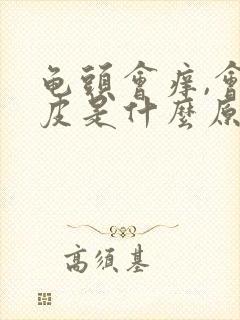 龟頭會痒,會
皮是什麼原
高須基